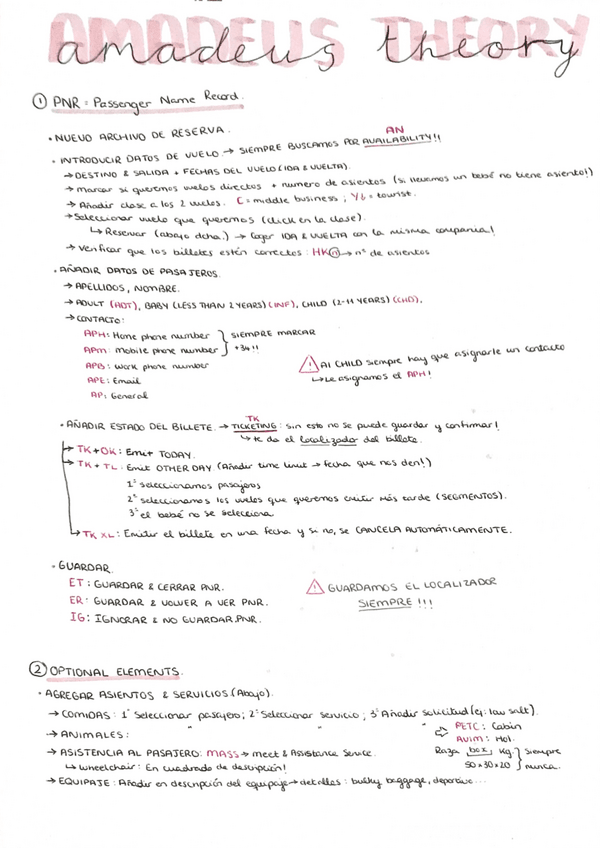 AMADEUS THEORY
amadeus theory
① PNR = Passenger Name Record.
• NUEVO ARCHIVO DE RESERVA.
AN
• INTRODUCIR DATOS DE VUELO → SIEMPRE BUSCAMOS POR AVAILABILITY!!
→ DESTINO & SALIDA + FECHAS DEL VUELO (IDA & VUELTA).
→ marcar si queremos vuelos directos + numero de asientos (si llevamos un bebé no tiene asiento!)
→ Añadir clase a los 2 vuelos. C = middle business ; Y6 = tourist.
→ Seleccionar vuelo que queremos (click en la clase).
↳ Reservar (abajo dcha.) → Coger IDA & VUELTA con la misma compañia!
→ Verificar que los billetes estén correctos: HKⓝ → nº de asientos
• AÑADIR DATOS DE PASAJEROS.
→ APELLIDOS, NOMBRE.
→ ADULT (ADT), BABY (LESS THAN 2 YEARS) (INF), CHILD (2-11 YEARS) (CHD).
→ CONTACTO:
APH: Home phone number } SIEMPRE MARCAR
APM: mobile phone number } +34!!
APB: Work phone number
APE: Email
AP: General
⚠ Al CHILD siempre hay que asignarle un contacto
↳ Le asignamos el APH!
TK
• AÑADIR ESTADO DEL BILLETE. → TICKETING: sin esto no se puede guardar y confirmar!
↳ te da el localizador del billete.
→ TK+OK: Emit TODAY.
→ TK + TL: Emit OTHER DAY (Añadir time limit → fecha que nos den!)
1º seleccionamos pasajeros
2º seleccionamos los vuelos que queremos emitir más tarde (SEGMENTOS).
3º el bebé no se selecciona
↳ TK XL: Emitir el billete en una fecha y si no, se CANCELA AUTOMÁTICAMENTE.
• GUARDAR.
ET: GUARDAR & CERRAR PNR.
ER: GUARDAR & VOLVER A VER PNR.
IG: IGNORAR & NO GUARDAR PNR.
⚠ GUARDAMOS EL LOCALIZADOR
SIEMPRE !!!
② OPTIONAL ELEMENTS.
• AGREGAR ASIENTOS & SERVICIOS (Abajo).
→ COMIDAS: 1º Seleccionar pasajero; 2º Seleccionar servicio; 3º Añadir solicitud (ej: low salt).
→ ANIMALES: " " " ⇨ PETC: Cabin
AVIM: Hol.
→ ASISTENCIA AL PASAJERO: MASS → meet & Assistance Service.
↳ Wheelchair: En cuadrado de descripción!
Raza box, Kg. } siempre
50x30x20 } nunca.
→ EQUIPAJE: Añadir en descripción del equipaje → detalles: bulky baggage, deportivo...